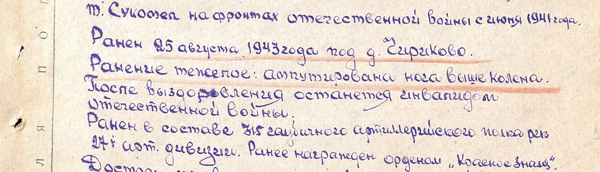 т. Сукожел на фронтах отечественной войны с июня 1941 года.
Ранен 25 августа 1943 года под д. Чириково.
Ранение тежелое: ампутирована нога выше колена.
После выздоровления останется инвалидом
отечественной войны.
Ранен в составе 315 гаубичного артиллерийского полка
27й арт. дивизии. Ранее награжден орденом „Красное Знамя".
ля по